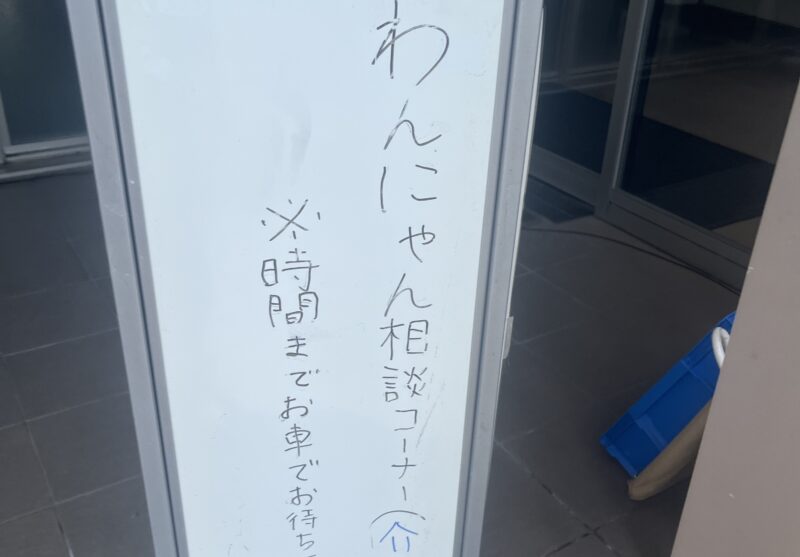 わんにゃん相談コーナー(介
※時間までお車でお待ち